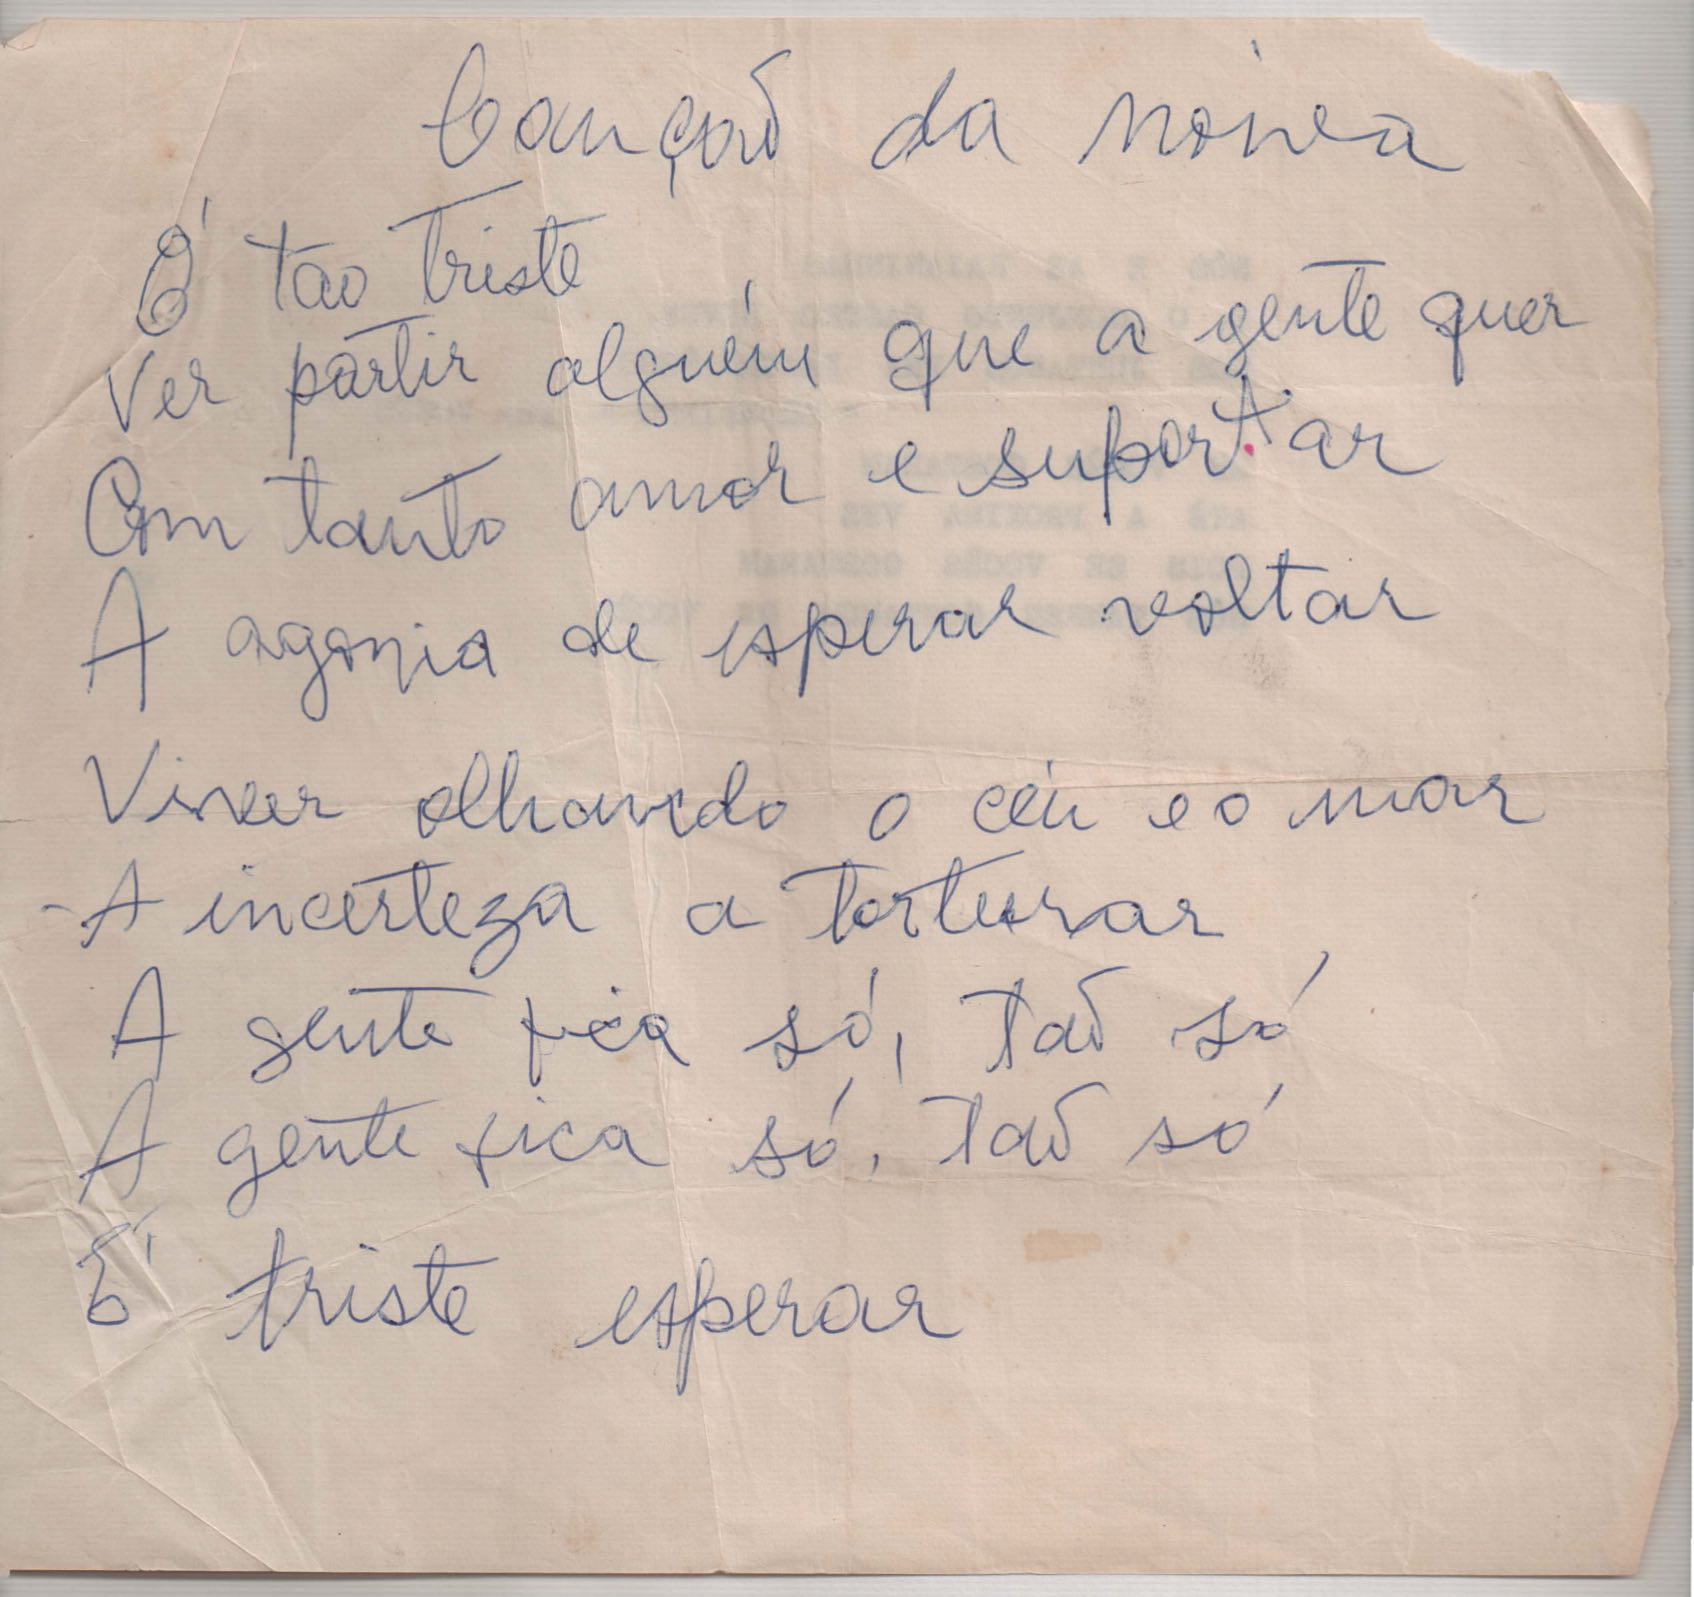 Canção da noiva
É tão triste
Ver partir alguém que a gente quer
Com tanto amor e suportar
A agonia de esperar voltar
Viver olhando o céu e o mar
-A incerteza a torturar
A gente fica só, tão só
A gente fica só, tão só
É triste esperar
ATÉ A PROXIMA VEZ
SE VOCÊS